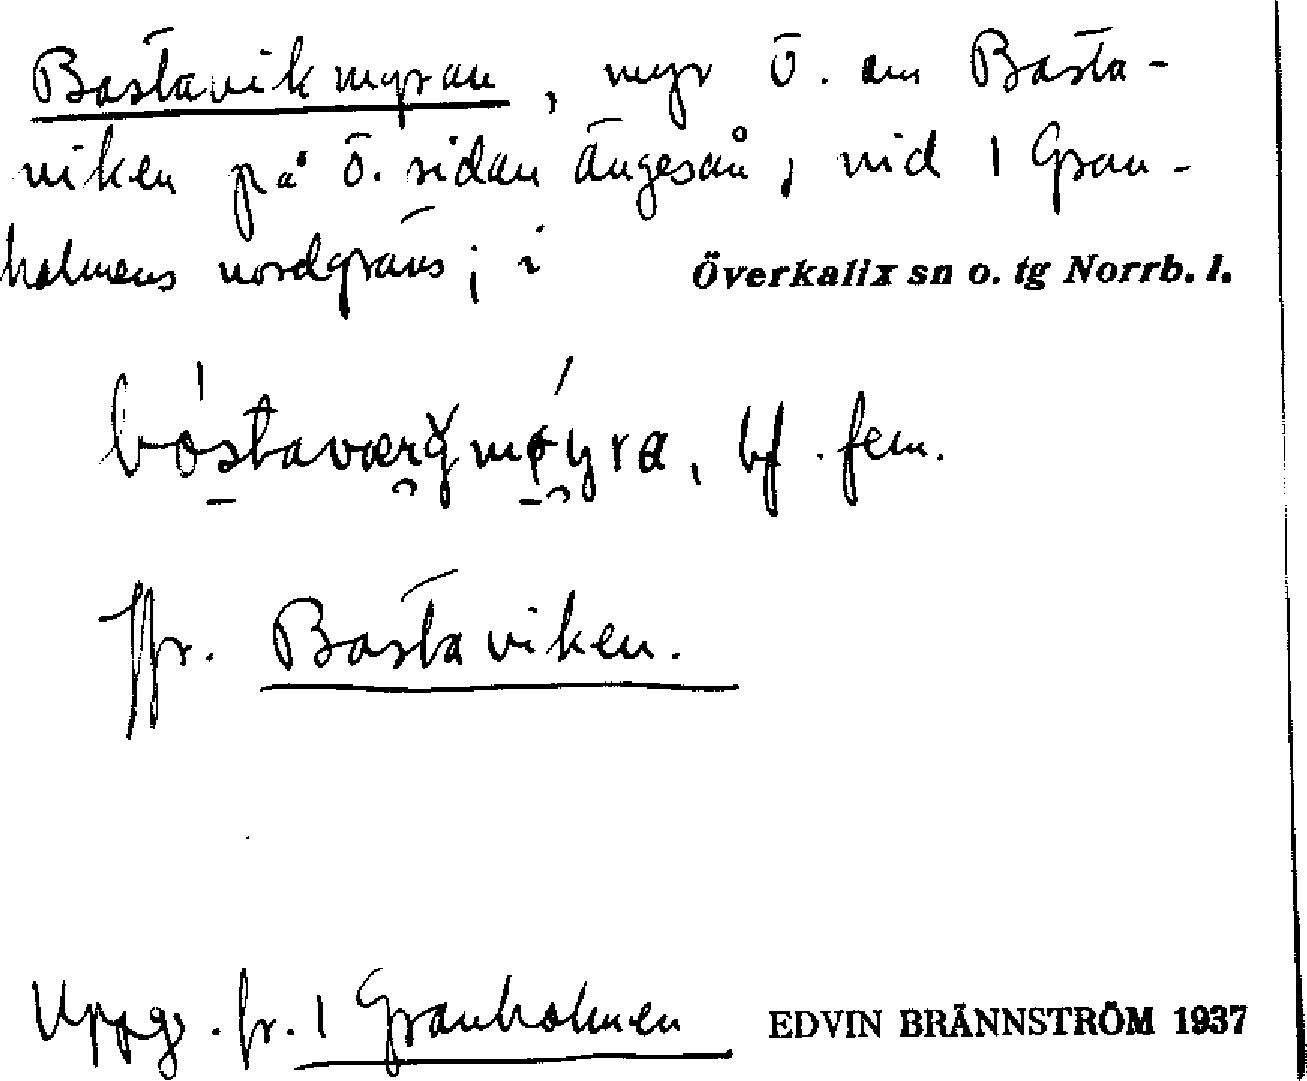 Bastavikmyran, myr ö. om Basta-
viken på ö. sidan Ängesån, vid 1 Gran-
holmens nordgräns; i Överkalix sn o. tg Norrb. l.
bf. fem.
Jfr. Bastaviken.
Uppg. fr. 1 Granholmen EDVIN BRÄNNSTRÖM 1937